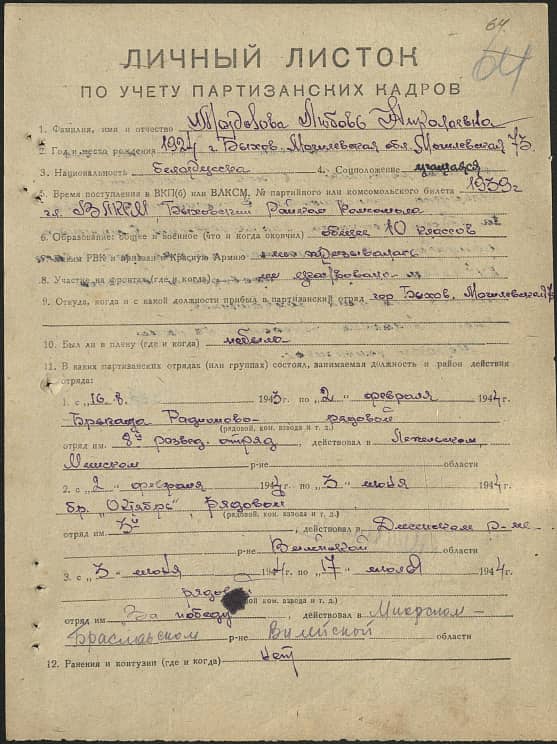 64
64
ЛИЧНЫЙ ЛИСТОК
ПО УЧЕТУ ПАРТИЗАНСКИХ КАДРОВ
1. Фамилия, имя и отчество Любовь Николаевна
2. Год и место рождения 1924 г Быхов, Могилевская обл. Могилевская 73.
3. Национальность белорусска 4. Соцположение учащаяся
5. Время поступления в ВКП(б) или ВЛКСМ, № партийного или комсомольского билета 1939 г
чл. ВЛКСМ, Быховский Райком Комсомола
6. Образование: общее и военное (что и когда окончил) общее 10 классов
7. Каким РВК и призван в Красную Армию не призывалась
8. Участие на фронтах (где и когда) не участвовала
9. Откуда, когда и с какой должности прибыл в партизанский отряд гор Быхов, Могилевская
10. Был ли в плену (где и когда) небыла
11. В каких партизанских отрядах (или группах) состоял, занимаемая должность и район действия
отряда:
1. с „16. 8. 1943 г. по „2" февраля 1944 г.
Бригада Радионова рядовой
(рядовой, ком. взвода и т. д.)
отряд им. 8й развед. отряд, действовал в Лепельском,
Минском р-не области
2. с „2" февраля 1944 г. по „3" июня 1944 г.
бр. "Октябрь", рядовой
(рядовой, ком. взвода и т. д.)
отряд им 3й, действовал в Дисненском р-не
р-не Вилейской области
3. с „3" июня 1944 г. по „17" июля 1944 г.
рядовой
(рядовой ком. взвода и т. д.)
отряд им За победу, действовал в Миорском-
Браславском р-не Вилейской области
12. Ранения и контузии (где и когда) нет